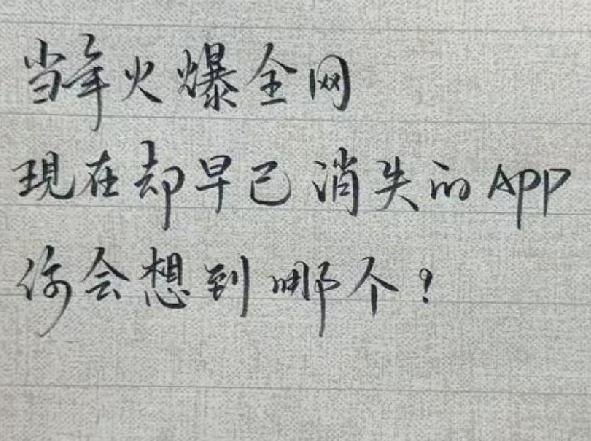 当年火爆全网
现在却早已消失的APP
你会想到哪个？